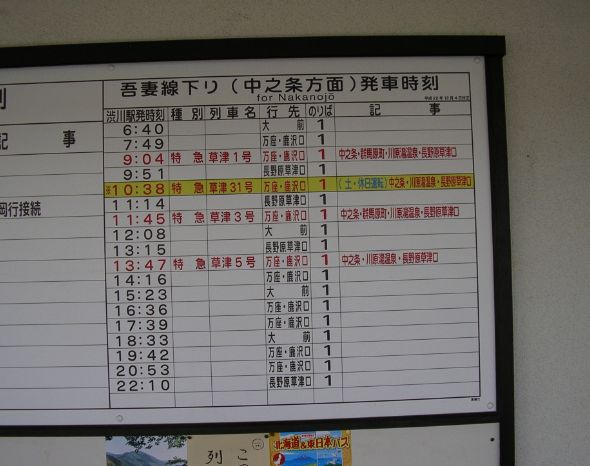 吾妻線下り(中之条方面)発車時刻
for Nakanojō
渋川駅発時刻 種別 列車名 行先 のりば 記事
6:40 大前 1
7:49 万座・鹿沢口 1
9:04 特急 草津1号 万座・鹿沢口 1 中之条・群馬原町・川原湯温泉・長野原草津口
9:51 長野原草津口 1
※10:38 特急 草津31号 万座・鹿沢口 1 (土・休日運転)中之条・川原湯温泉・長野原草津口
11:14 長野原草津口 1
11:45 特急 草津3号 万座・鹿沢口 1 中之条・群馬原町・川原湯温泉・長野原草津口
12:08 大前 1
13:15 長野原草津口 1
13:47 特急 草津5号 万座・鹿沢口 1 中之条・川原湯温泉・長野原草津口
14:16 万座・鹿沢口 1
15:23 大前 1
16:36 万座・鹿沢口 1
17:39 万座・鹿沢口 1
18:33 大前 1
19:42 万座・鹿沢口 1
20:53 万座・鹿沢口 1
22:10 長野原草津口 1
記事
岡行接続
北海道&東日本パス